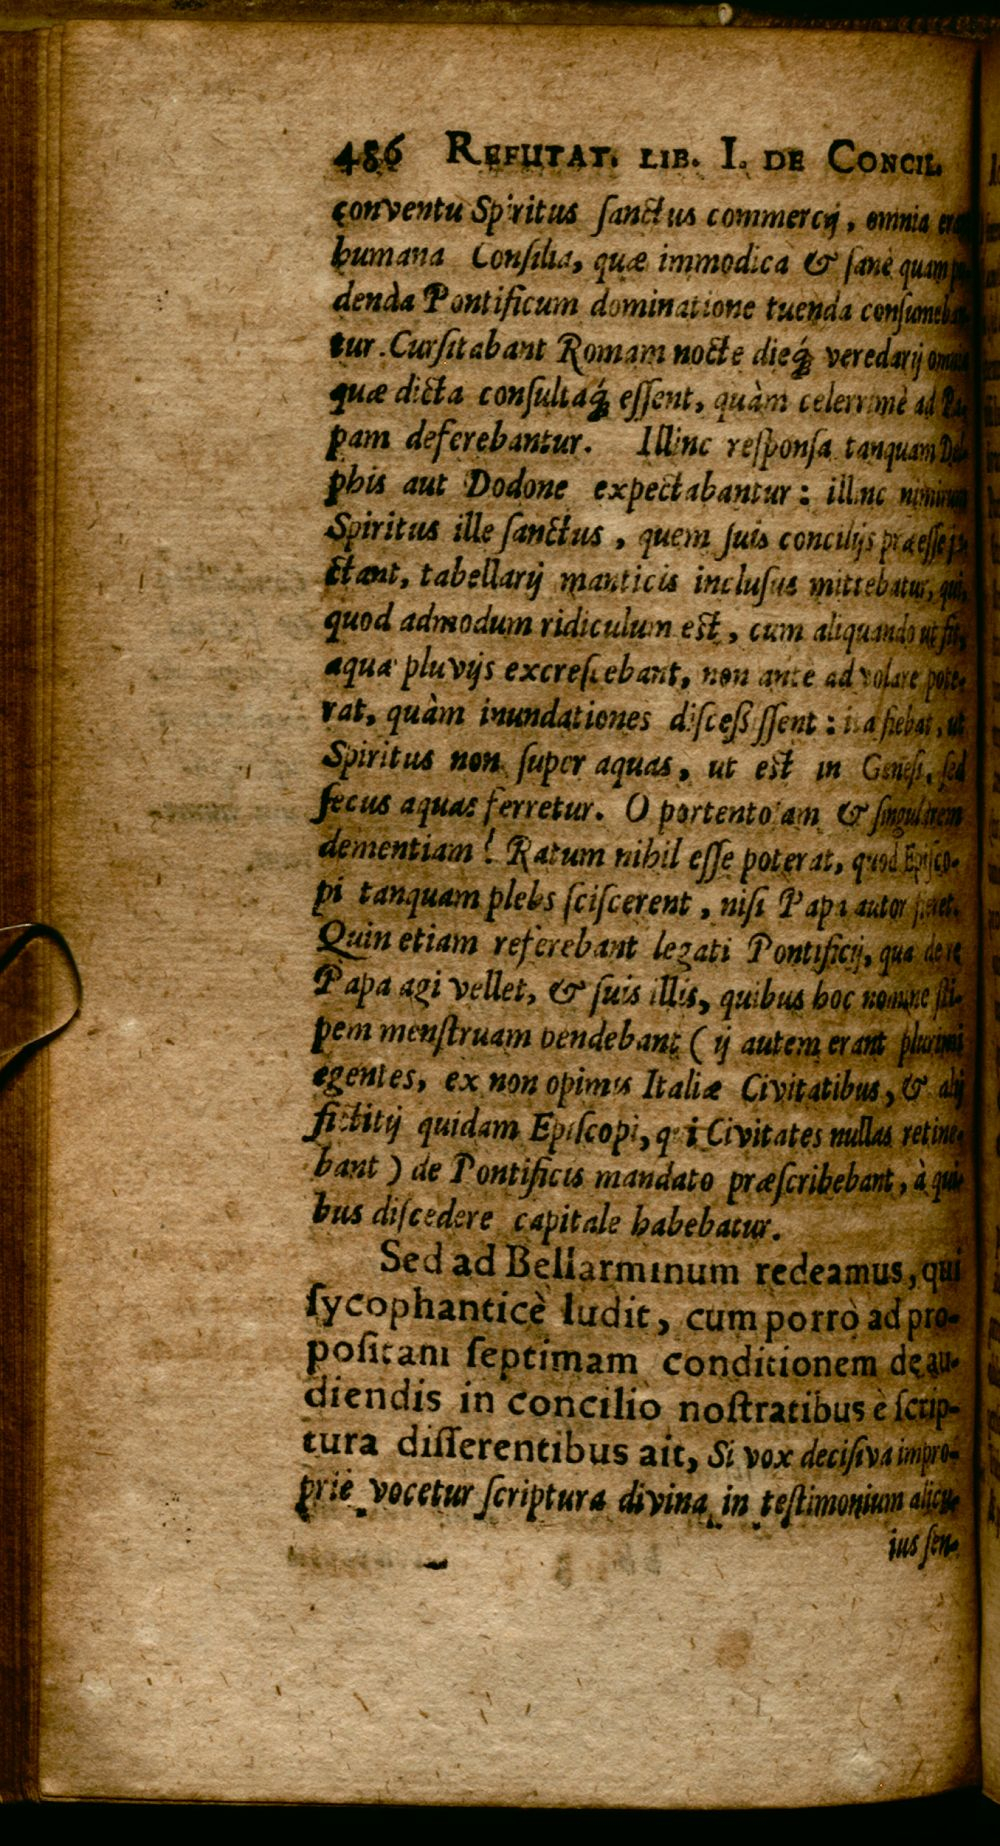 486 REFUTAT. LIB. I. DE CONCIL.
conventu Spiritus ſanctus commercij, omnia
humana Conſilia, quæ immodica & ſanè quam
denda Pontificum dominatione tuenda conſumeban
tur. Curſitabant Romam nocte dieq́; veredarij omnia
quæ dicta conſultaq́; eſſent, quàm celerrimè ad Pa-
pam deferebantur. Illinc reſponſa tanquam Del-
phis aut Dodone expectabantur: illinc nimirum
Spiritus ille ſanctus, quem ſuis concilijs præeſſe
ctant, tabellarij manticis incluſus mittebatur, qui,
quod admodum ridiculum eſt, cum aliquando ut fit,
aquæ pluvijs excreſcebant, non ante ad volare pote-
rat, quàm inundationes diſceßiſſent: ita fiebat, ut
Spiritus non ſuper aquas, ut eſt in Geneſi, ſed
ſecus aquas ferretur. O portentoſam & ſingularem
dementiam! Ratum nihil eſſe poterat, quod Epiſco-
pi tanquam plebs ſciſcerent, niſi Papa autor fieret.
Quin etiam referebant legati Pontificij, qua de re
Papa agi vellet, & ſuis illis, quibus hoc nomine ſti-
pem menſtruam pendebant (ij autem erant plurimi
egentes, ex non opimis Italiæ Civitatibus, & alij
fictitij quidam Epiſcopi, qui Civitates nullas retine-
bant) de Pontificis mandato præſcribebant, à qui-
bus diſcedere capitale habebatur.
Sed ad Bellarminum redeamus, qui
ſycophanticè ludit, cum porrò ad pro-
poſitam ſeptimam conditionem de au-
diendis in concilio noſtratibus è ſcrip-
tura diſſerentibus ait, Si vox deciſiva impro-
priè vocetur ſcriptura divina in teſtimonium alicu-
ius ſen-